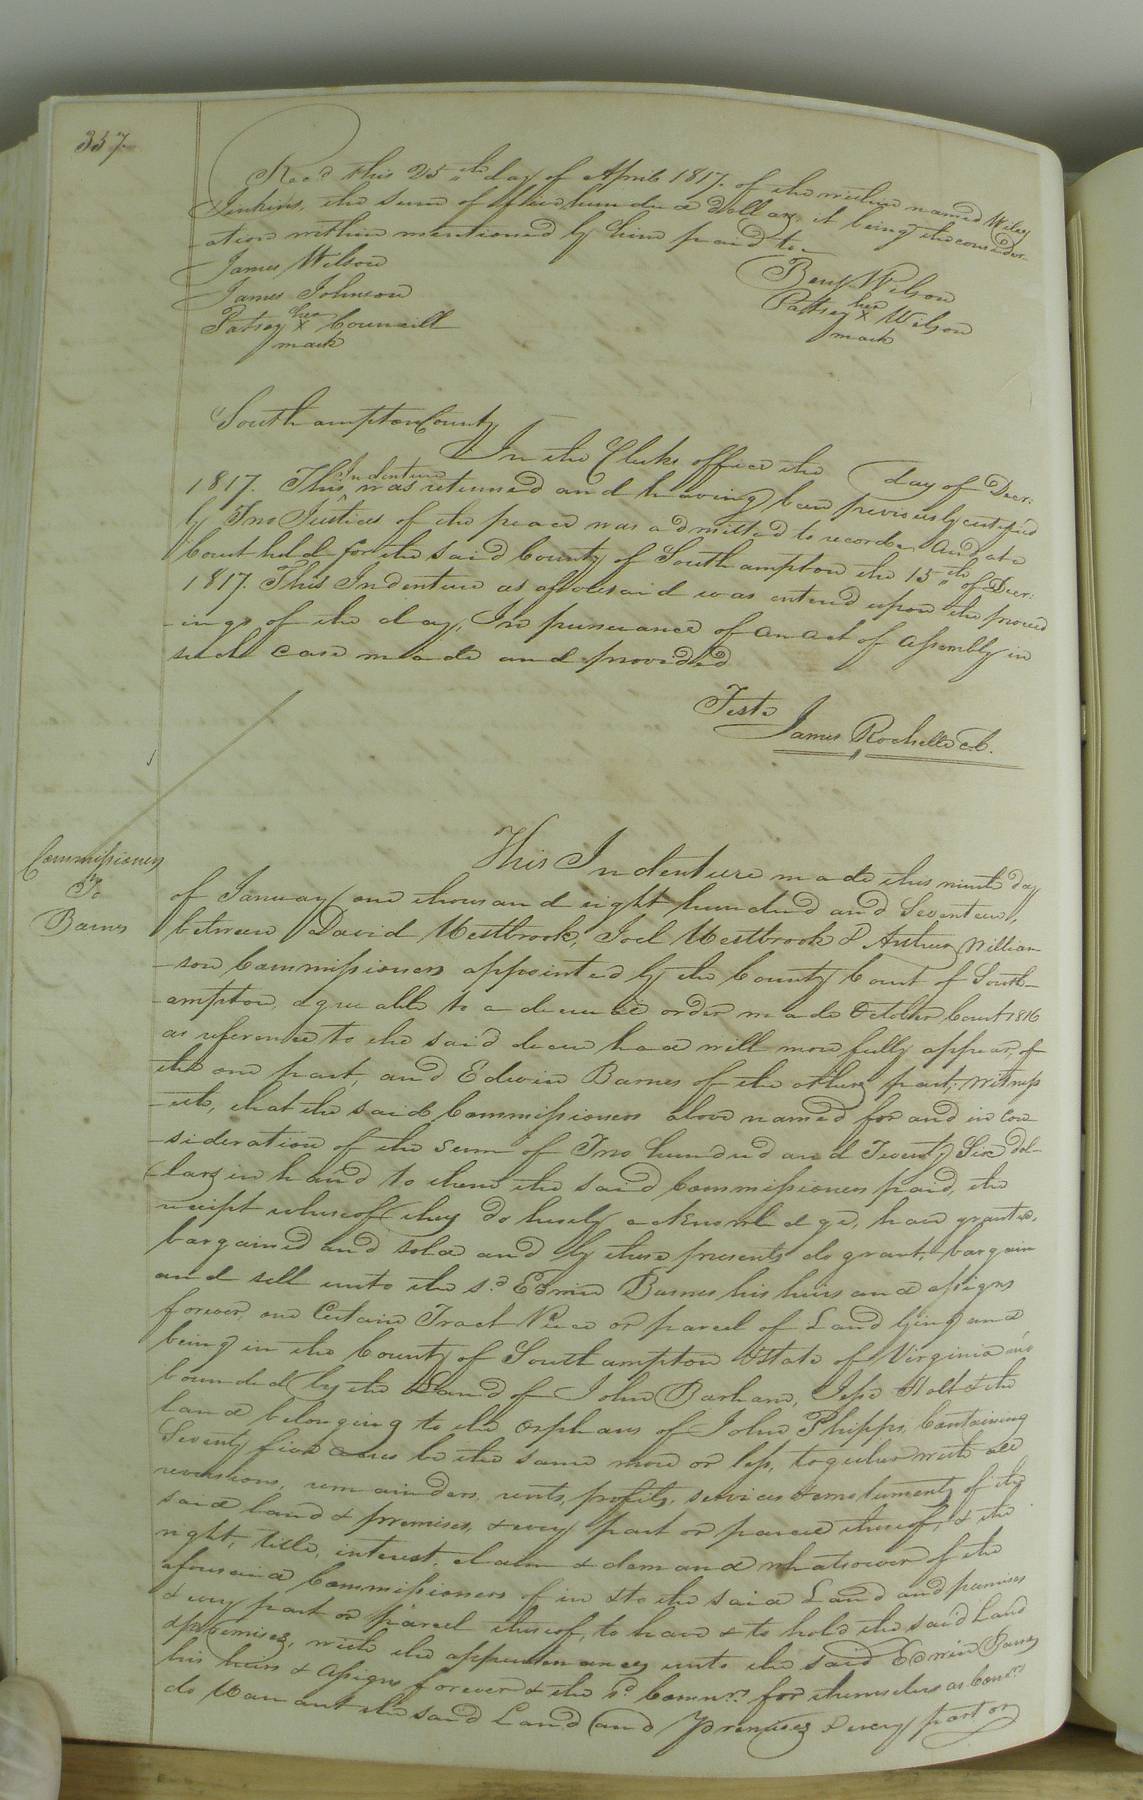 357.
Rec.d this 25.th day of April 1817. of the within named Wiley
Jenkins, the sum of hundred dollars, it being the consider-
-ation within mentioned by him paid to
James Wilson
Benj. Wilson
James Johnson
Patsey her x mark Wilson
Patsey her x mark Councill
Southampton County
In the Clerks office the day of Decr.
1817. This Indenture was returned and having been previously certified
by Two Justices of the peace was admitted to record. And at a
Court held for the said County of Southampton the 15.th of Decr.
1817. This Indenture as aforesaid was entered upon the proceed
-ings of the day, In pursuance of an act of Assembly in
such case made and provided
Teste
James Rochelle c.c.
Commissioners
To
Barnes
This Indenture made this ninth day
of January one thousand eight hundred and Seventeen,
between David Westbrook, Joel Westbrook & Arthur William
-son Commissioners appointed by the County Court of South-
-ampton, agreeable to a decree order made October Court 1816
as reference to the said decree had will more fully appear, of
the one part, and Edwin Barnes of the other part, Witness
-eth, that the said Commissioners above named for and in con
-sideration of the sum of Two hundred and Twenty Six dol-
-lars in hand to them the said Commissioners paid, the
receipt whereof they do hereby acknowledge, have granted,
bargained and sold and by these presents do grant, bargain
and sell unto the s.d Edwin Barnes his heirs and assigns
forever, one Certain Tract Piece or parcel of Land lying and
being in the County of Southampton & State of Virginia and
bounded by the Land of John Barham, Jesse Holt & the
land belonging to the orphans of John Phipps, Containing
Seventy five acres be the same more or less, together with all
reversions, remainders, rents, profits, services & emoluments of the
said land & premises, & every part or parcel thereof, & the
right, title, interest, claim & demand whatsoever of the
aforesaid Commissioners of in & to the said Land and premises
& every part or parcel thereof, to have & to hold the said Land
& premises, with the appurtenances unto the said Edwin Barnes
his heirs & assigns forever & the s.d Commrs. for themselves as Commrs.
do Warrant the said Land and Premises & every part or